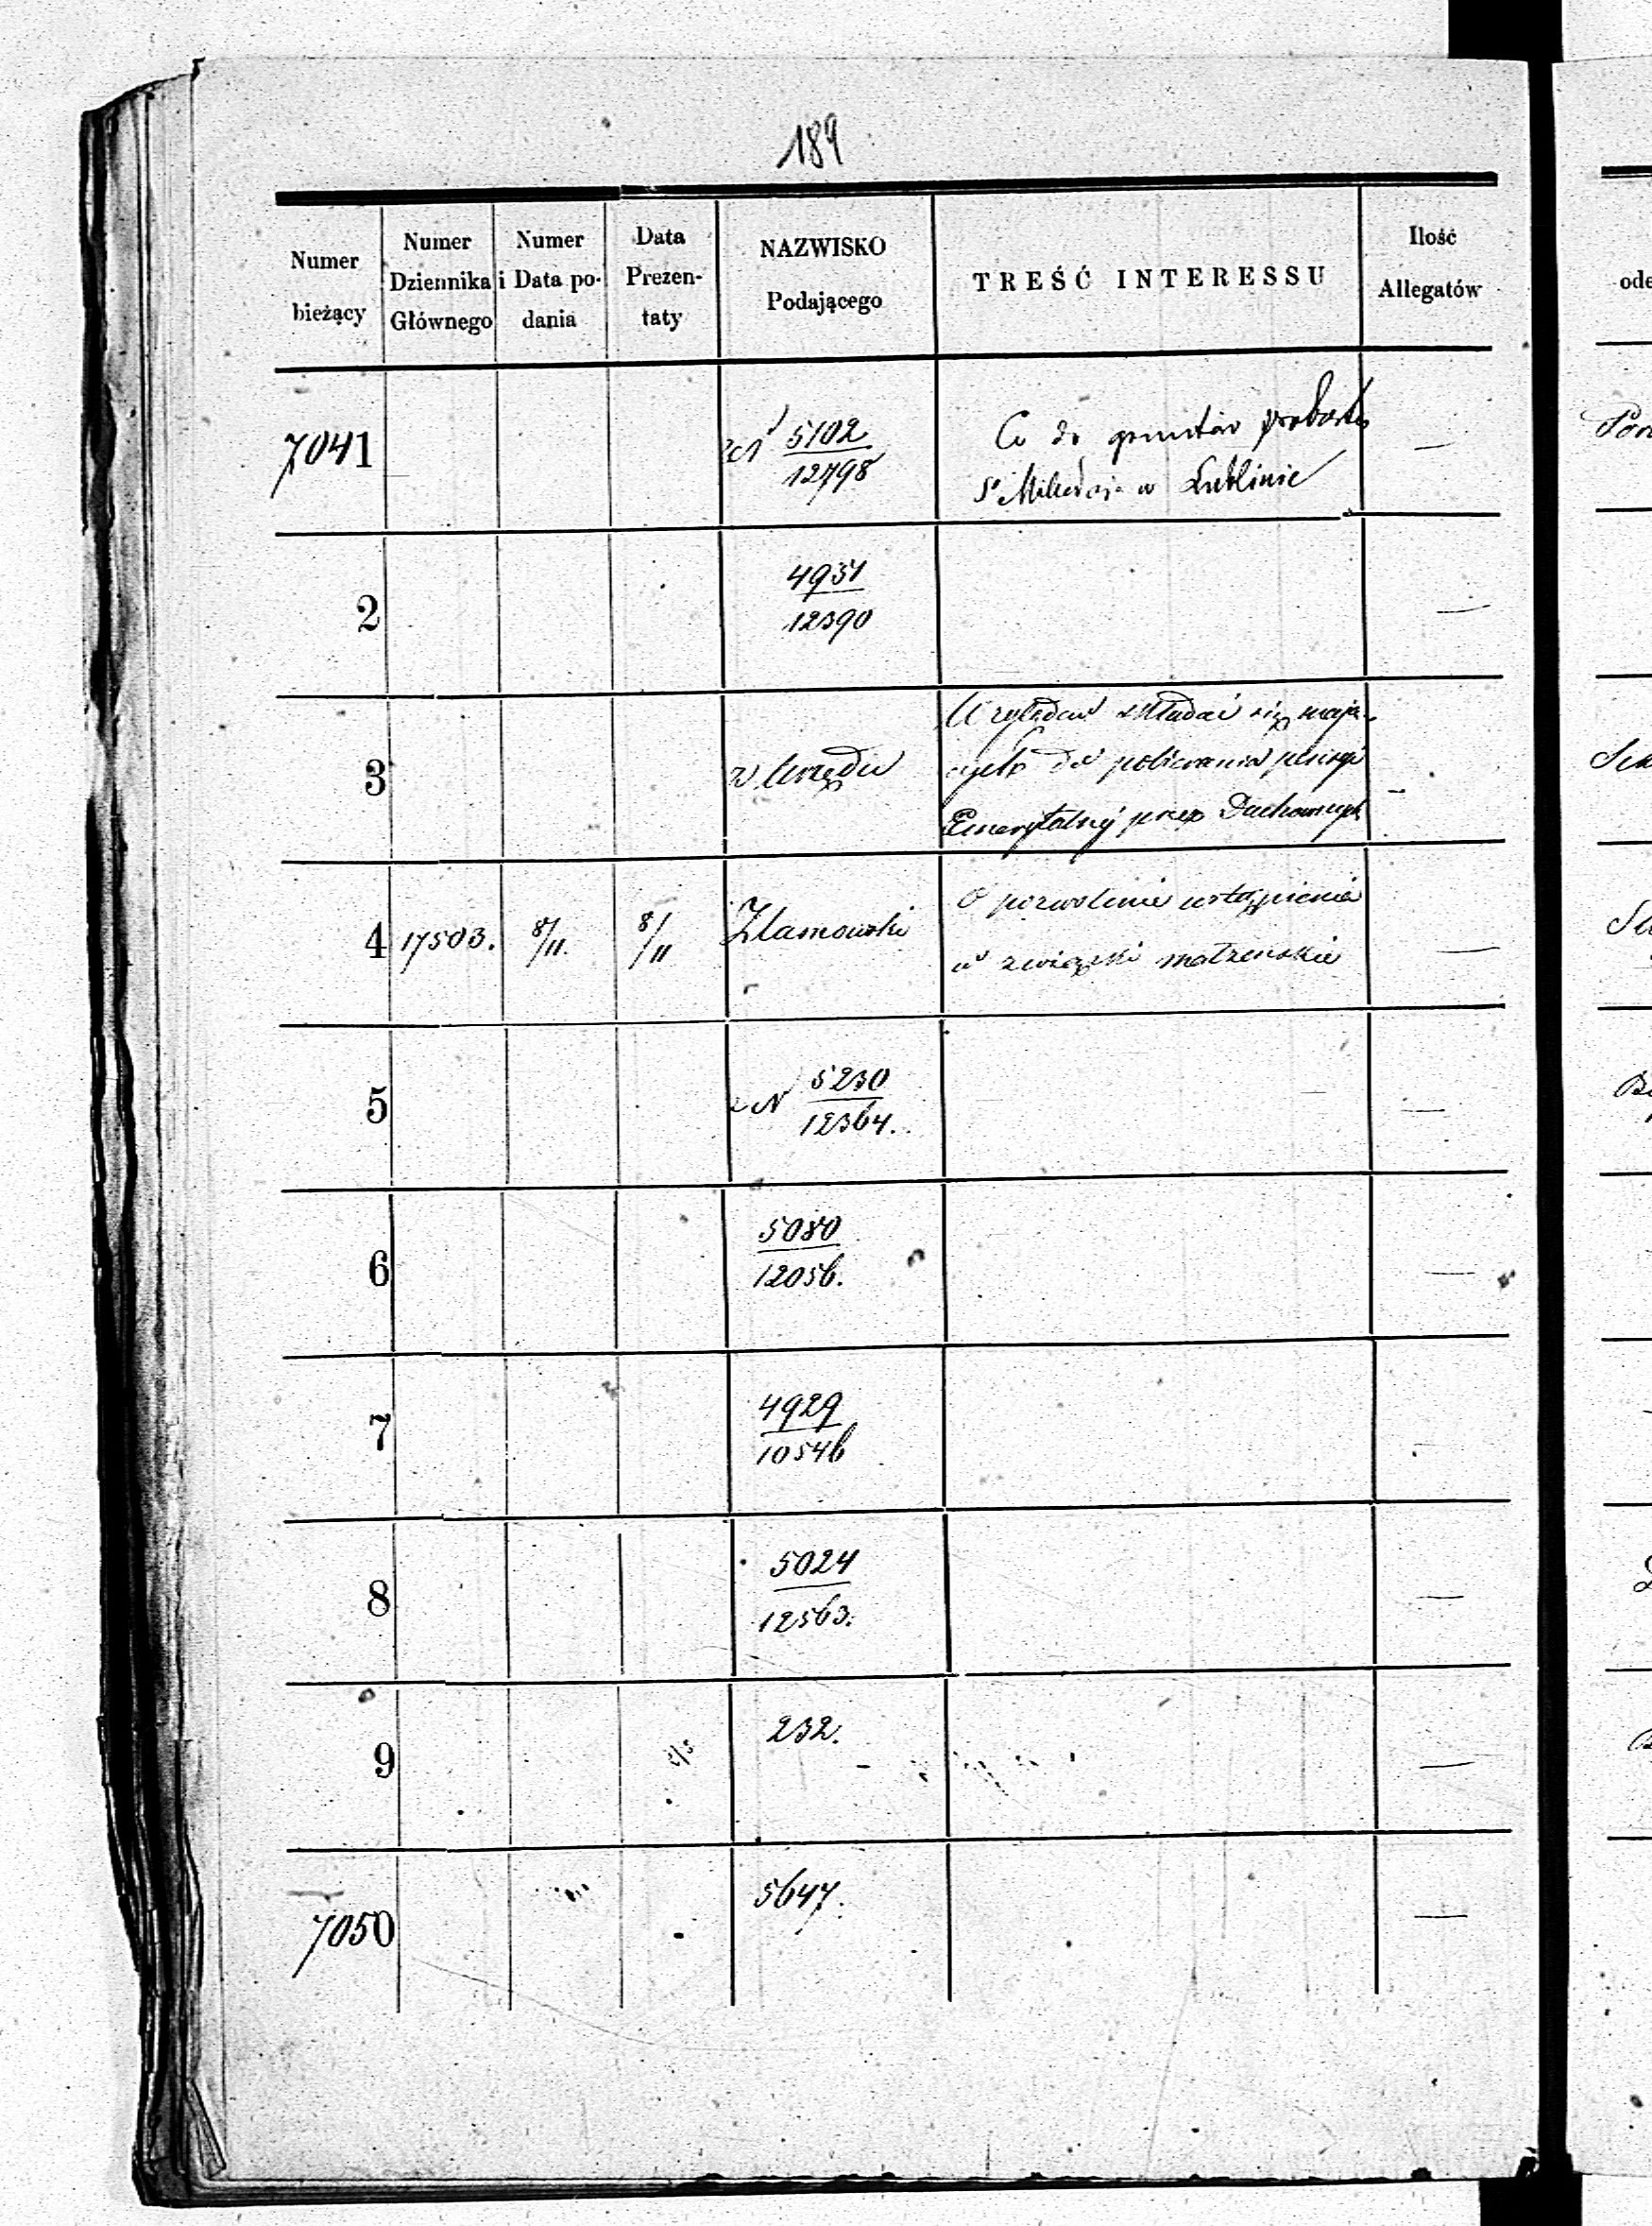 189
Numer bieżący
Numer Dziennika Głównego
Numer i Data podania
Data Prezentaty
NAZWISKO Podającego
TREŚĆ INTERESSU
Ilość Allegatów
ode
7041
N 5102
12798
Co do gruntów probostw
St Mikołaja w Lublinie
—
2
4931
12390
—
3
z Urzędu
Względem składać się mają-
cych do pobierania pensyi
Emerytalnéj przez Duchownych
—
4
17503.
8/11.
8/11
O pozwolenie wstąpienia
w związki małżeńskie
—
5
z N 5230
12364.
—
6
5080
12056.
—
7
4929
10546
8
5024
12563.
—
9
232.
—
7050
5647.
—